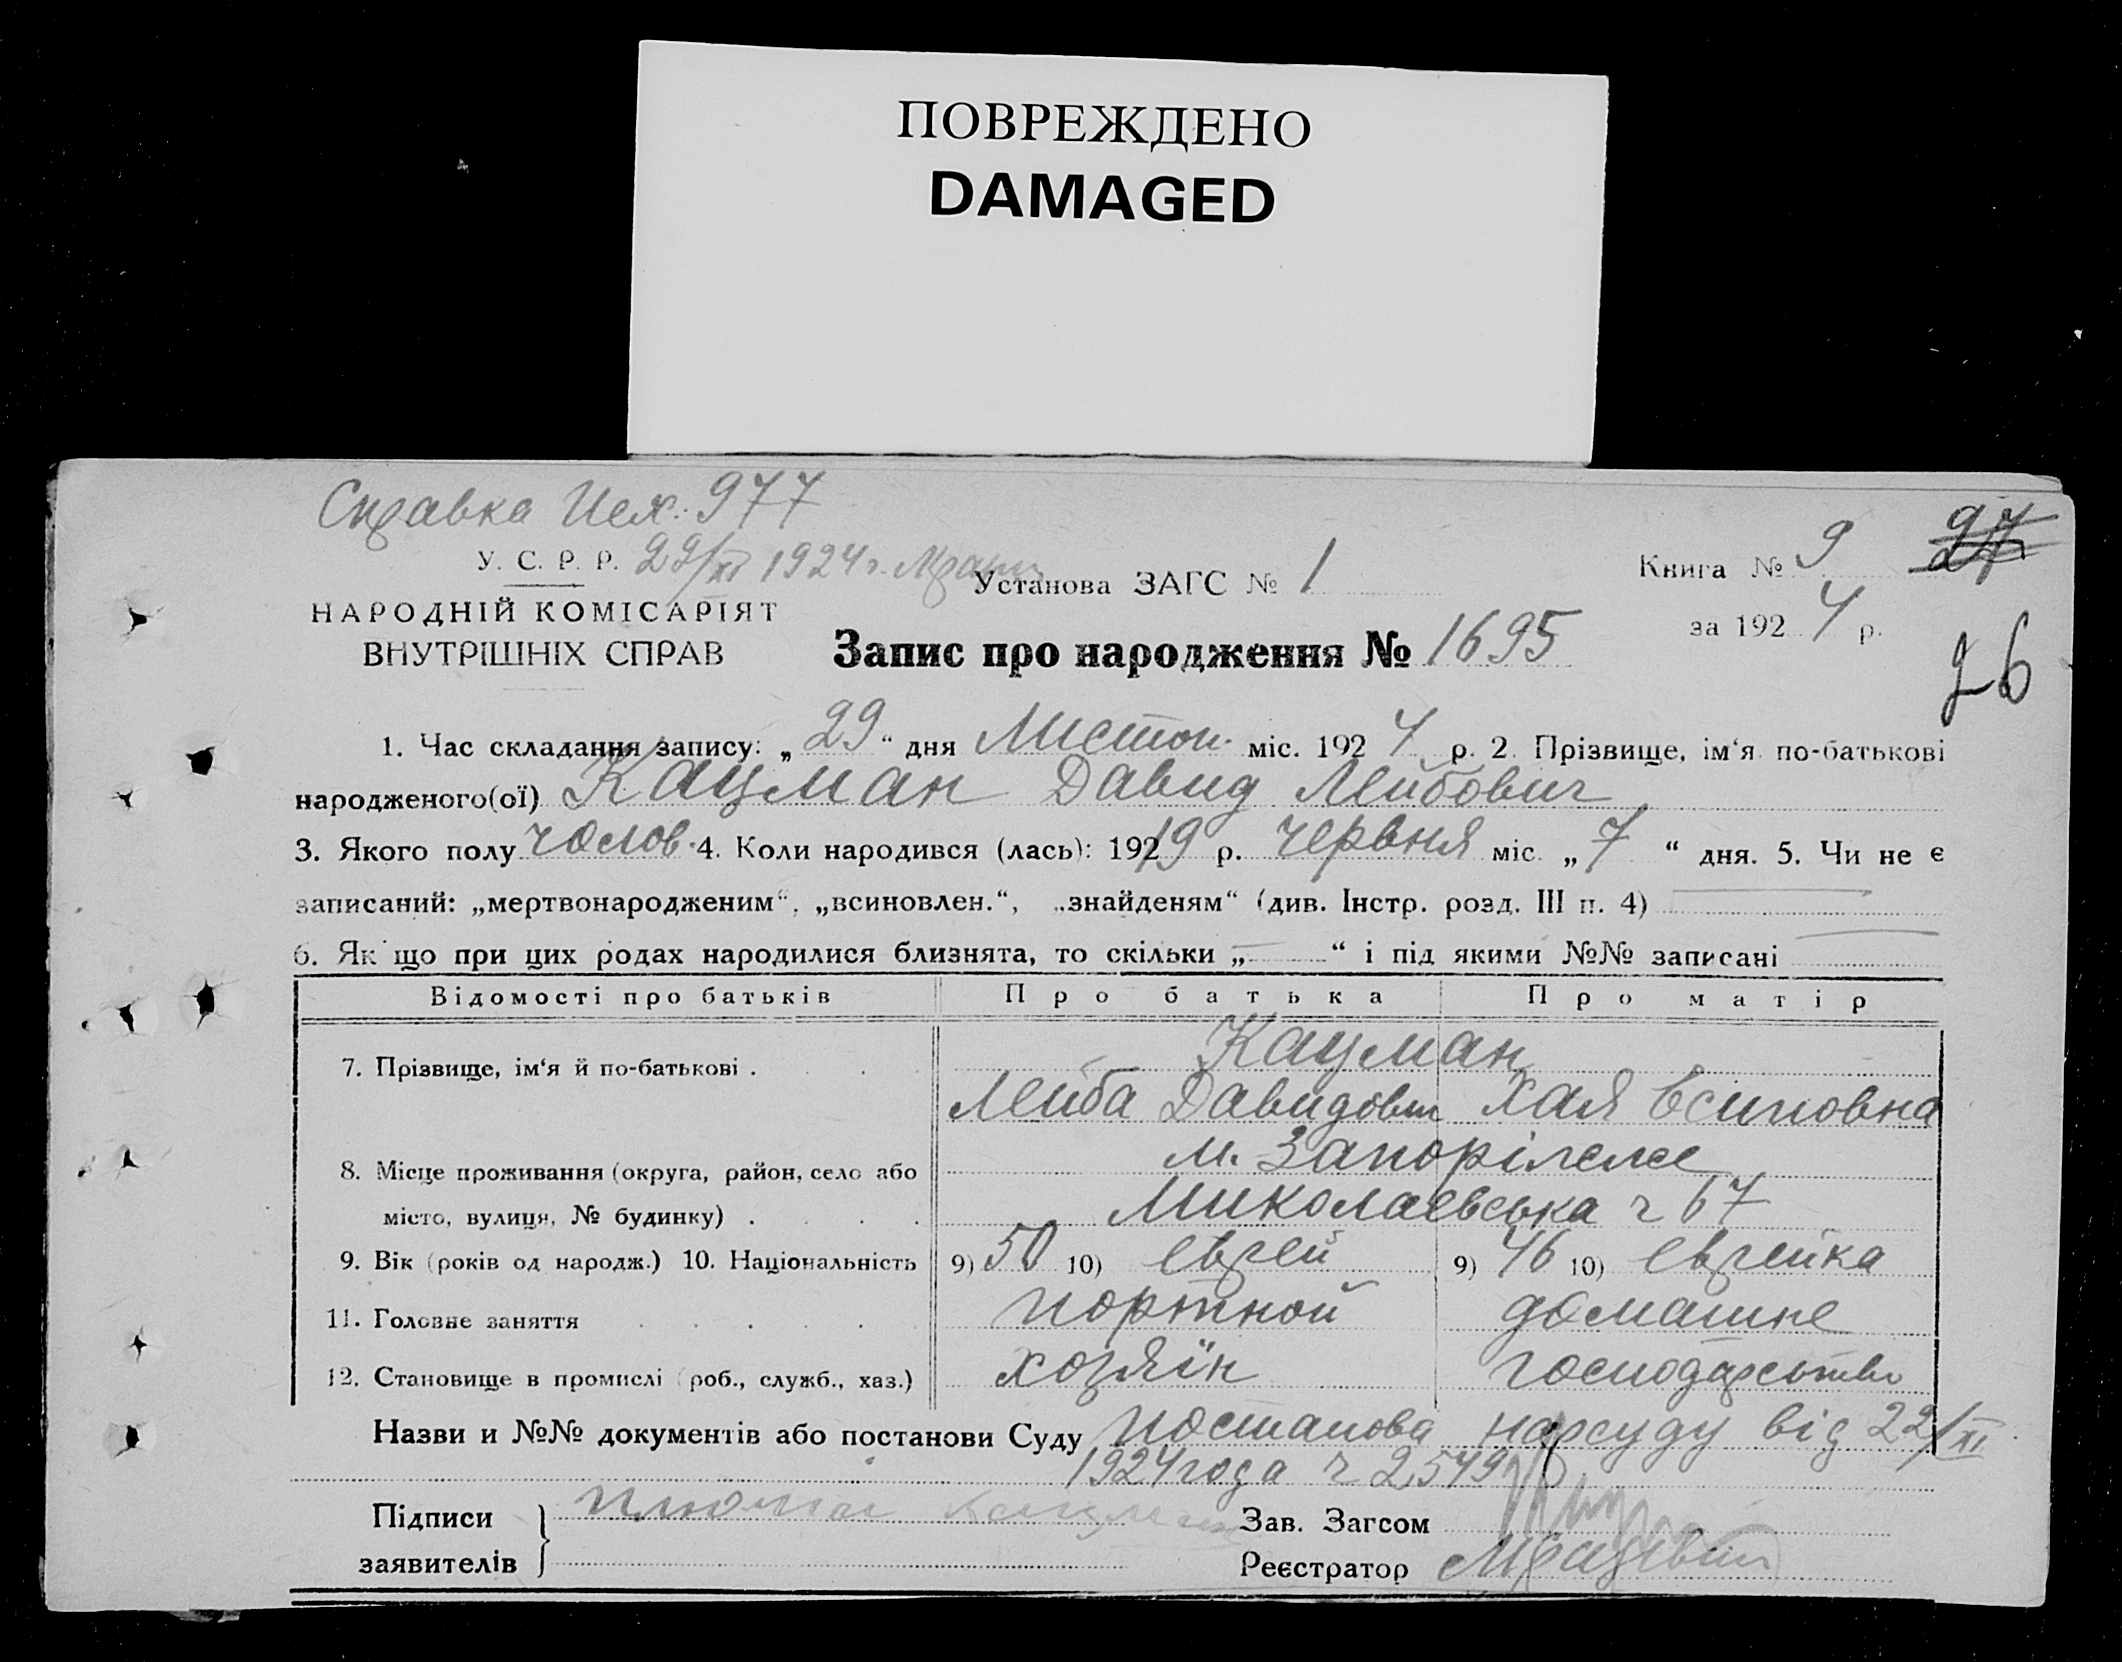 ПОВРЕЖДЕНО
DAMAGED
Справка Исх. 977
У. С. Р. Р. 29/XI 1924 г.
Установа ЗАГС № 1
Книга № 9
27
НАРОДНІЙ КОМІСАРІЯТ
за 1924 р.
ВНУТРІШНІХ СПРАВ
Запис про народження № 1695
26
1. Час складання запису: „29“ дня Листоп. міс. 1924 р. 2. Прізвище, ім‘я по-батькові
народженого(ої) Кацман Давид Лейбович
3. Якого полу чолов. 4. Коли народився (лась): 19219 р. червня міс. „7“ дня. 5. Чи не є
записаний: „мертвонародженим“, „всиновлен.“, „знайденям“ (див. Інстр. розд. III п. 4)
6. Як що при цих родах народилися близнята, то скільки „—“ і під якими №№ записані
Відомості про батьків Про батька Про матір
Кацман
7. Прізвище, ім‘я й по-батькові .
Лейба Давидович Хая Есиповна
м. Запоріжже
8. Місце проживання (округа, район, село або
місто, вулиця, № будинку) . Миколаевська ч 67
9. Вік (років од народж.) 10. Національність 9) 50 10) еврей 9) 46 10) еврейка
11. Головне заняття портной домашне
12. Становище в промислі (роб., служб., хаз.) хозяїн господарство
Назви и №№ документів або постанови Суду Постанова нарсуду від 22/XI
1924 года ч 2549
Підписи
заявителів
Зав. Загсом
Реєстратор